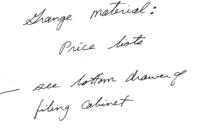 Grange material:
Price lists
— see bottom drawer of
filing cabinet